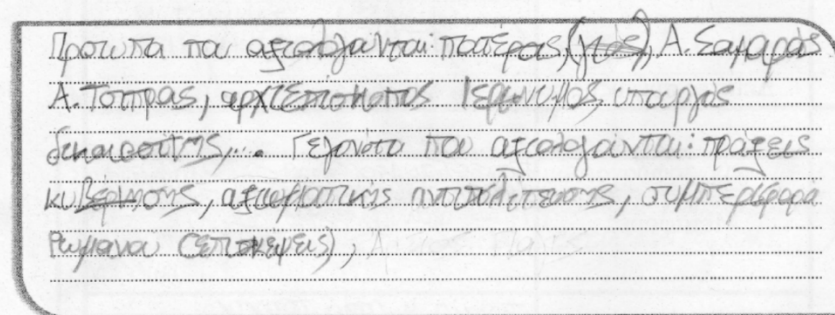 Προτυπα που αξιολογούνται: πατέρας, (γιός), Α. Σαμαράς
Α. Τσιπρας, αρχιεπίσκοπος Ιερωνυμος, υπουργός
δικαιοσύνης,... Γεγονότα που αξιολογούνται: πράξεις
κυβέρνησης, αξιωματικης αντιπολίτευσης, συμπεριφορα
Ρωμανου (επισκεψεις),